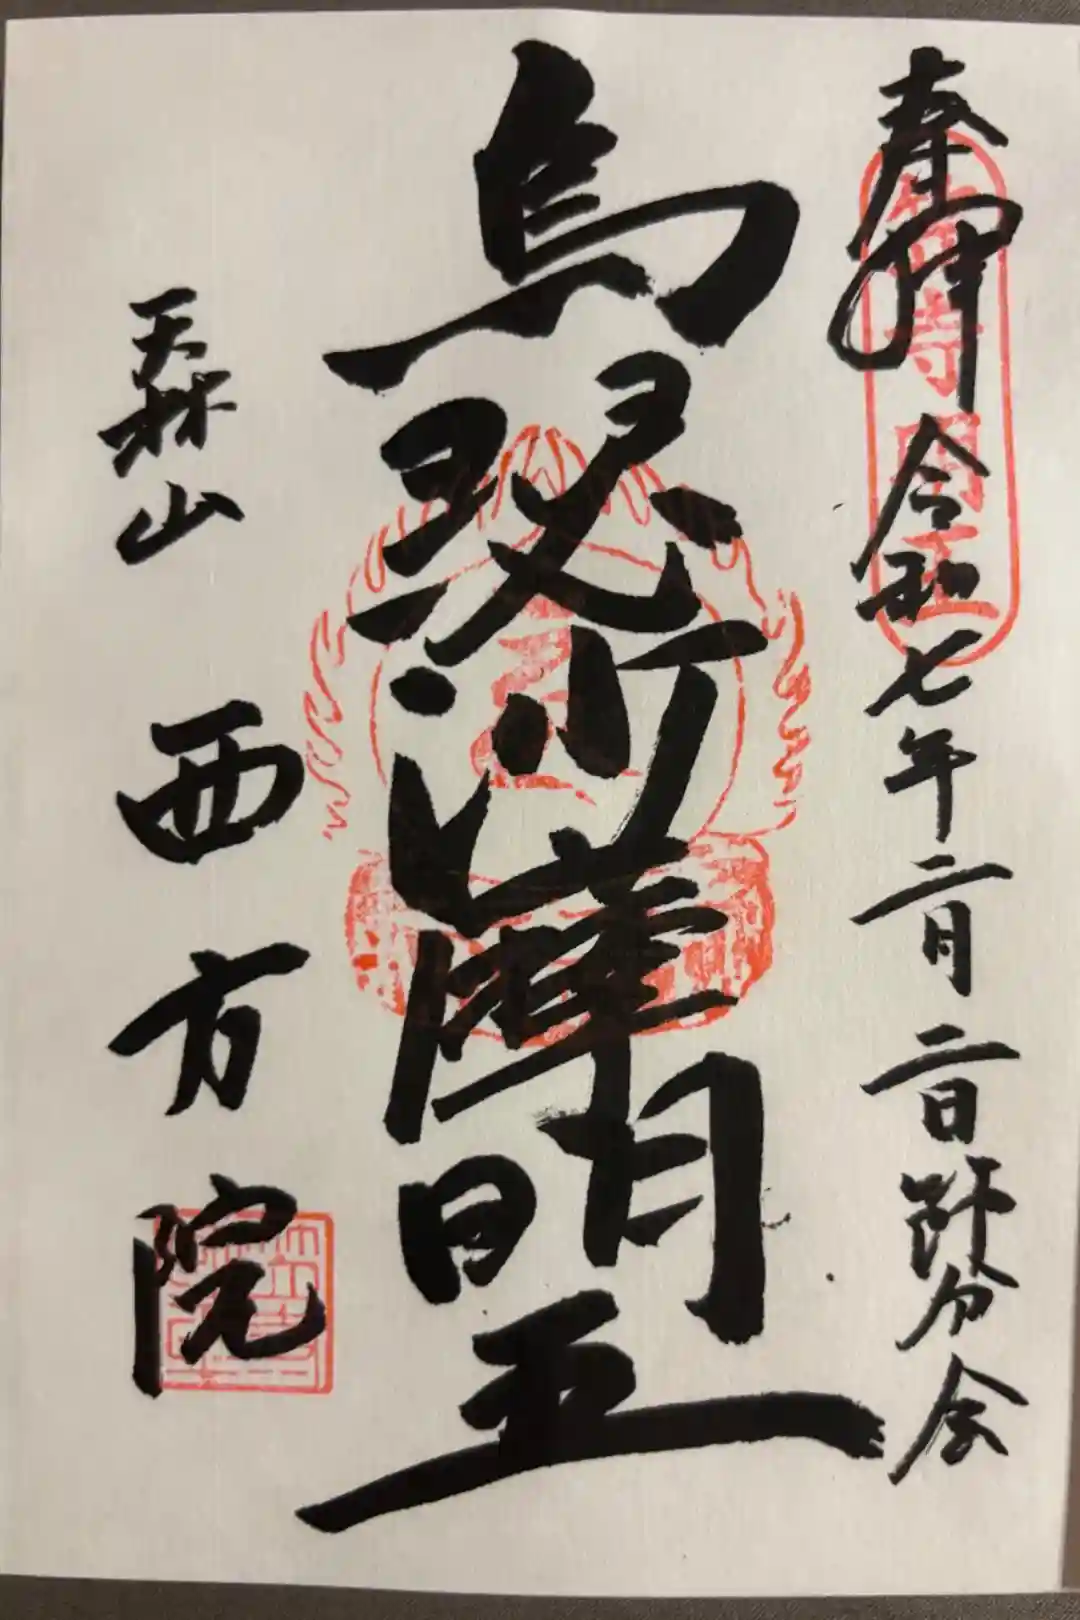 奉拝 令和七年二月二日 節分会
烏瑟沙摩明王
天林山 西方院